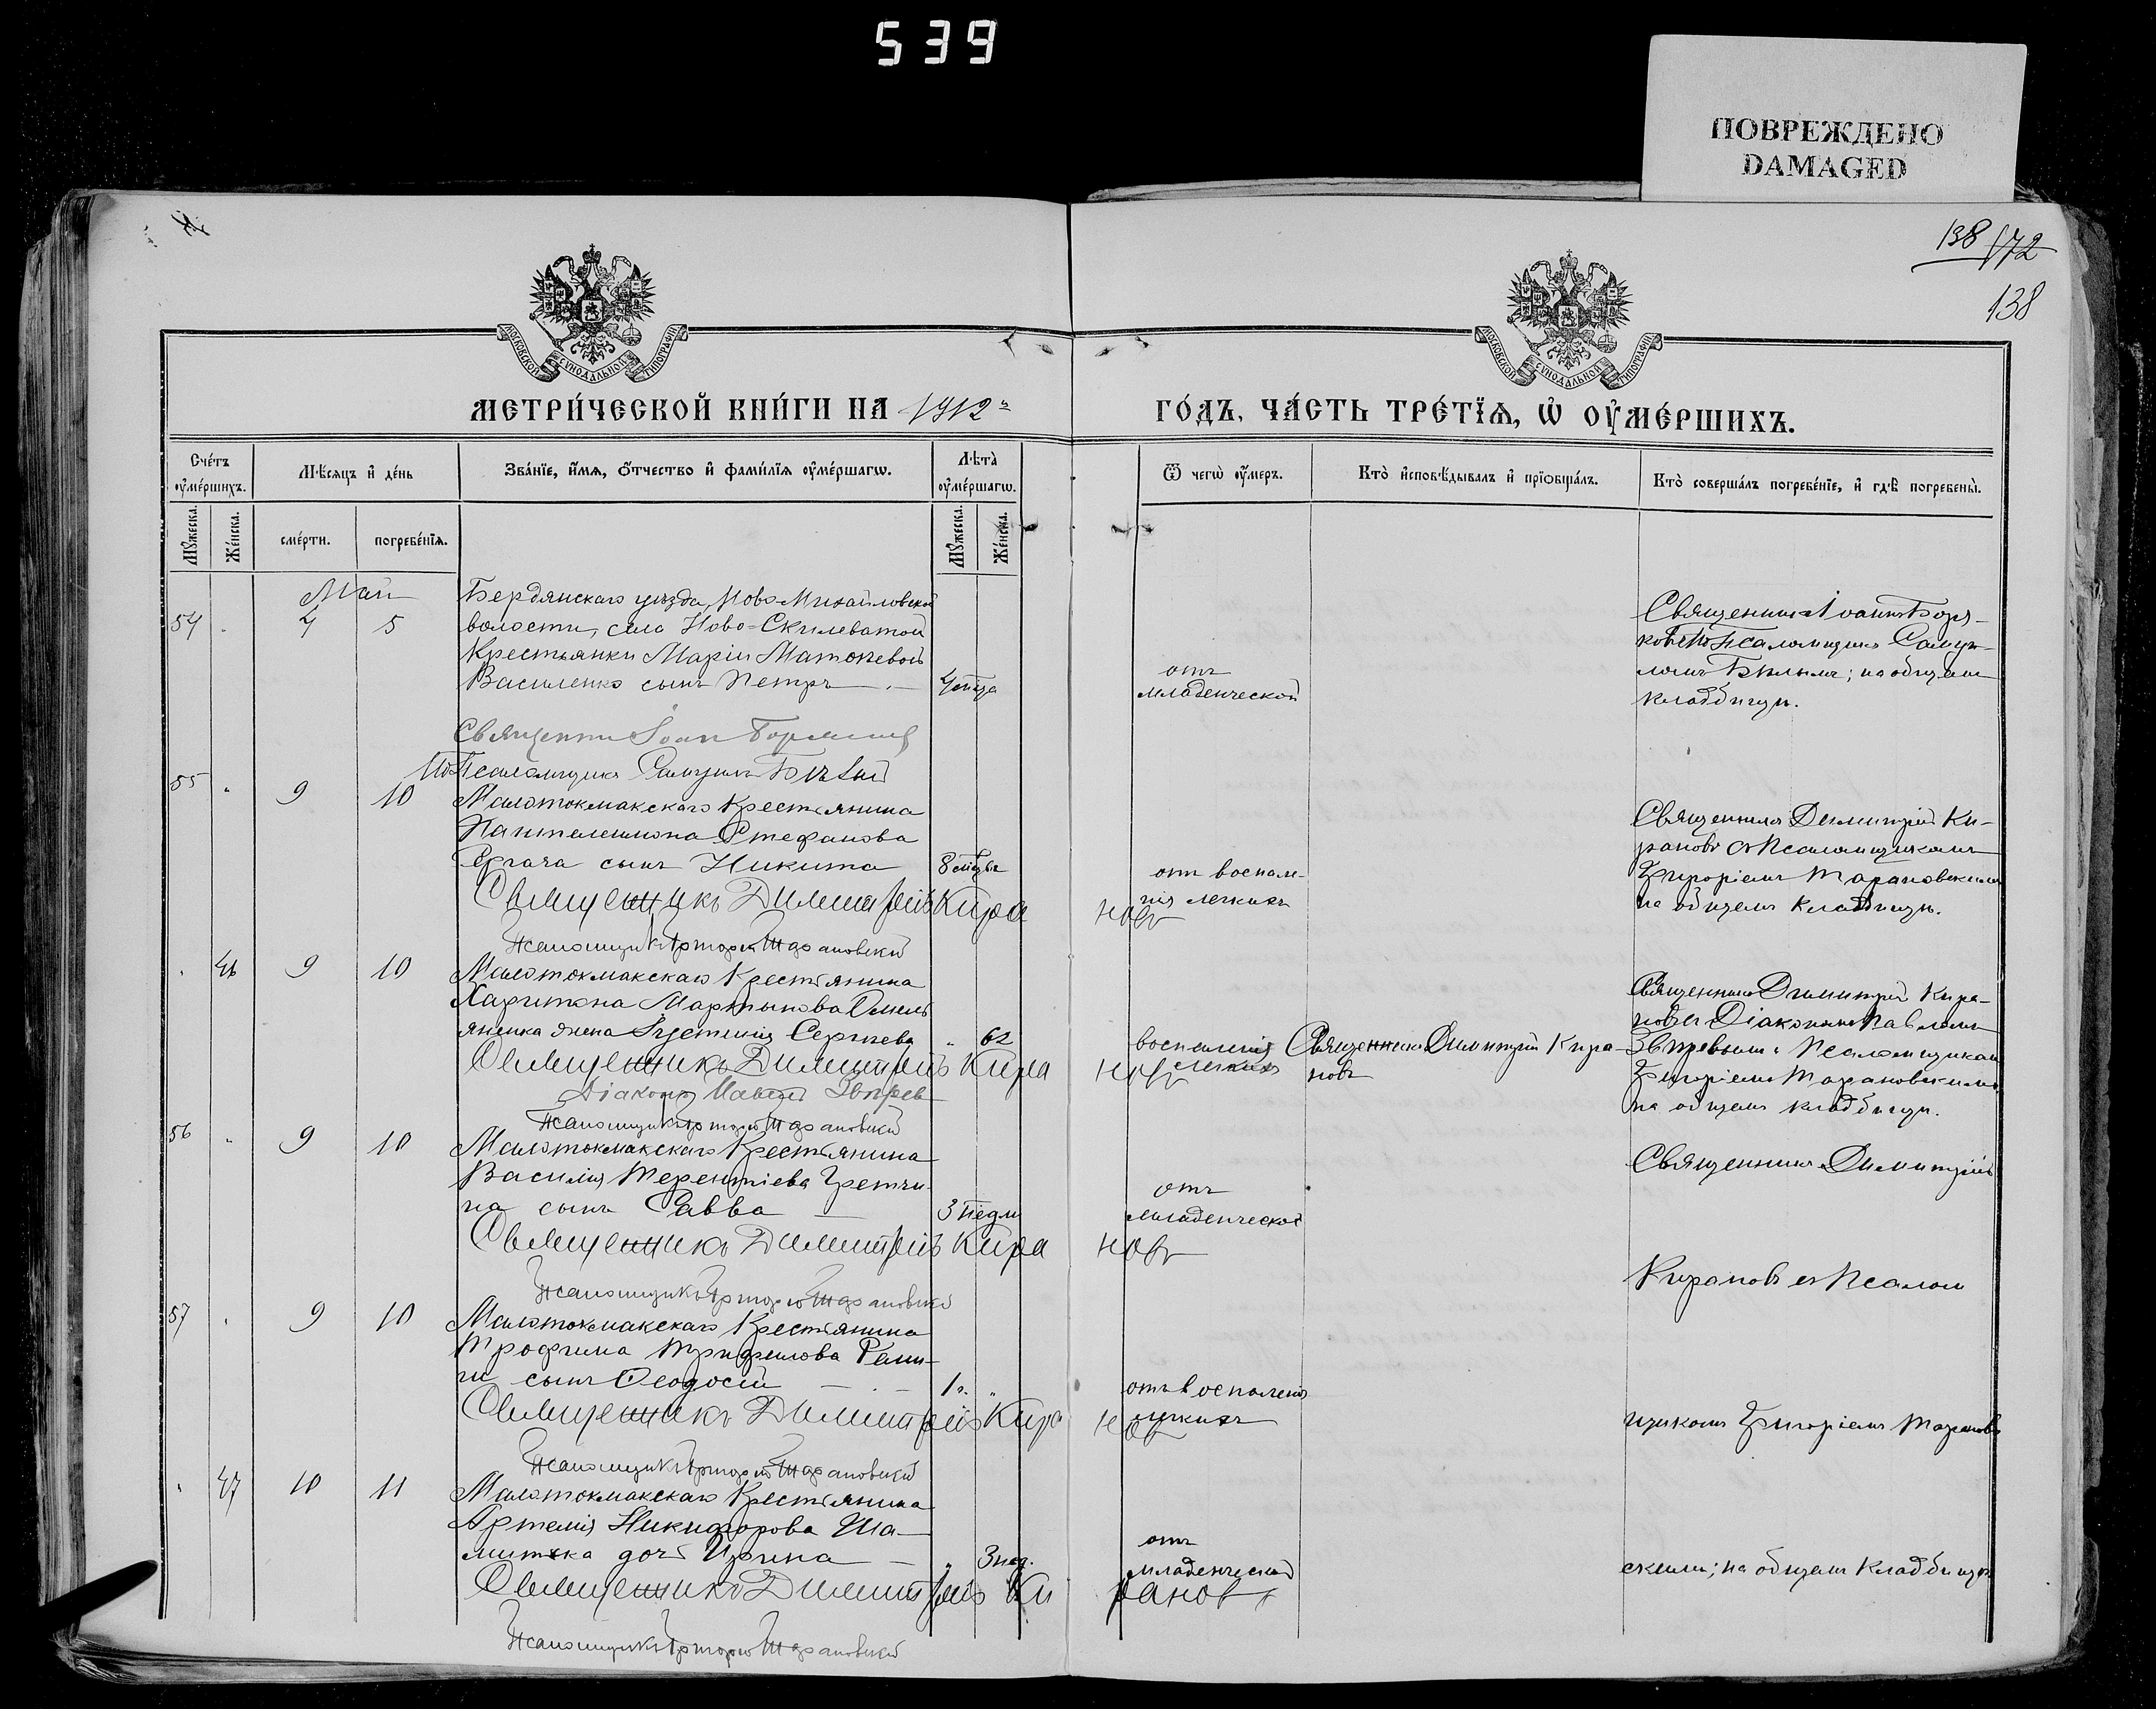 539
ПОВРЕЖДЕНО
DAMAGED
138 172
138
МОСКОВСКОЙ СУНОДАЛЬНОЙ ТИПОГРАФІИ
МОСКОВСКОЙ СУНОДАЛЬНОЙ ТИПОГРАФІИ
МЕТРИ́ЧЕСКОЙ КНИ́ГИ НА 1912 ГО́ДЪ, ЧА́СТЬ ТРЕ́ТІѦ, Ѡ҆ ОУ҆МЕ́РШИХЪ.
Сче́тъ оу҆ме́ршихъ.
Мѣ́сяцъ и҆ де́нь
Зва́нїе, и҆́мѧ, ѻ҆́тчество и҆ фами́лїѧ оу҆ме́ршагѡ.
Лѣта̀ оу҆ме́ршагѡ.
Ѿ чегѡ̀ оу҆́меръ.
Кто̀ и҆сповѣ́дывалъ и҆ прїѡбща́лъ.
Кто̀ соверша́лъ погребе́нїе, и҆ гдѣ̀ погребены̀.
Мꙋ́жеска. Же́нска. сме́рти. погребе́нїѧ. Мꙋ́жеска. Же́нска.
Май Бердянскаго уѣзда, Ново Михайловской
54 " 4 5 волости, села Ново-Скилеватой
Крестьянки Маріи Матѳѣевой
Василенко сынъ Петръ
отъ
младенческой
Священникъ Іоаннъ Боря-
Псаломщикъ Самуи-
ломъ Бѣлымъ; на общемъ
кладбищѣ.
Священникъ Іоаннъ
Псаломщикъ Самуилъ Бѣлый
55 " 9 10 Малотокмакскаго Крестьянина
Пантелеимона Стефанова
Ергача сынъ Никита 8 мѣс
отъ воспале-
нія легкихъ
Священникъ Димитрій Ки-
рановъ съ Псаломщикомъ
Григоріемъ Тарановскимъ
на общемъ кладбищѣ.
Священникъ Димитрій Кирановъ
Псаломщикъ Григорій Тарановскій
" 46 9 10 Малотокмакскаго Крестьянина
Харитона Мартынова Омель
яненка жена Іустинія Сергѣева " 62
воспаленія
легкихъ
Священникъ Димитрій Кира-
новъ
Священникъ Димитрій Кира-
новъ съ Діакономъ Павломъ
Звѣревымъ и Псаломщикомъ
Григоріемъ Тарановскимъ
на общемъ кладбищѣ.
Священникъ Димитрій Кирановъ
Діаконъ Павелъ Звѣревъ
Псаломщикъ Григорій Тарановскій
56 " 9 10 Малотокмакскаго Крестьянина
Василія Терентіева Гретчи-
на сынъ Савва 3 недѣли
отъ
младенческой
Священникъ Димитрій
Священникъ Димитрій Кирановъ
Кирановъ съ Псалом
Псаломщикъ Григорій Тарановскій
57 " 9 10 Малотокмакскаго Крестьянина
Трофима Трифилова
сынъ Ѳеодосій 1 г. "
отъ воспаленія
легкихъ
щикомъ Григоріемъ Таранов
Священникъ Димитрій Кирановъ
Псаломщикъ Григорій Тарановскій
" 47 10 11 Малотокмакскаго Крестьянина
Артемія Никифорова Ша-
дочь Ирина " 3 нед.
отъ
младенческой
скимъ; на общемъ кладбищѣ
Священникъ Димитрій Кирановъ
Псаломщикъ Григорій Тарановскій